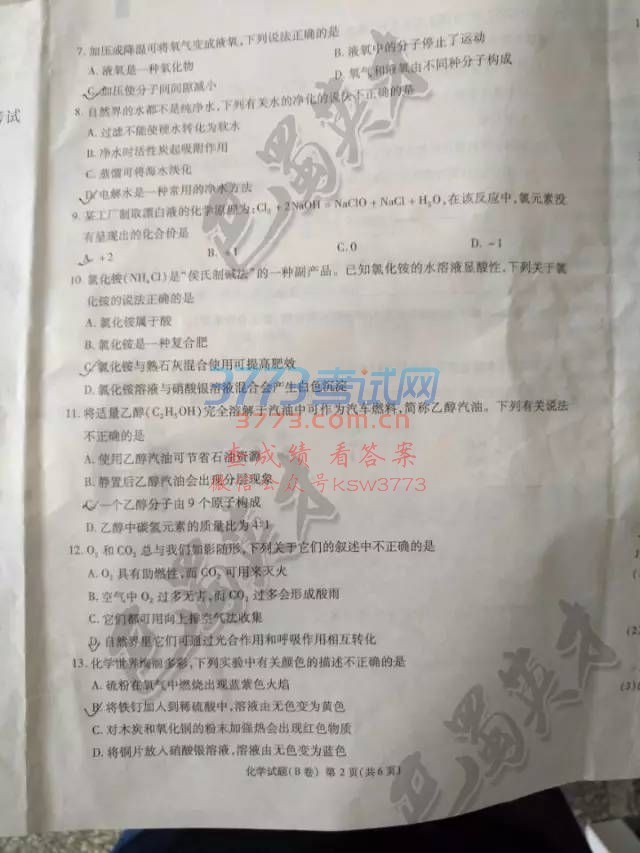 7. 加压或降温可将氧气变成液氧,下列说法正确的是
A. 液氧是一种氧化物
B. 液氧中的分子停止了运动
C. 加压使分子间间隙减小
D. 氧气和液氧由不同种分子构成
8. 自然界的水都不是纯净水,下列有关水的净化的说法不正确的是
A. 过滤不能使硬水转化为软水
B. 净水时活性炭起吸附作用
C. 蒸馏可将海水淡化
D. 电解水是一种常用的净水方法
9. 某工厂制取漂白液的化学原理为:Cl₂ + 2NaOH = NaClO + NaCl + H₂O,在该反应中,氯元素没
有呈现出的化合价是
A. +2
B. +1
C. 0
D. -1
10. 氯化铵(NH₄Cl)是“侯氏制碱法”的一种副产品。已知氯化铵的水溶液显酸性,下列关于氯
化铵的说法正确的是
A. 氯化铵属于酸
B. 氯化铵是一种复合肥
C. 氯化铵与熟石灰混合使用可提高肥效
D. 氯化铵溶液与硝酸银溶液混合会产生白色沉淀
3773考试网
11. 将适量乙醇(C₂H₅OH)完全溶解于汽油中可作为汽车燃料,简称乙醇汽油。下列有关说法
3773.com.cn
不正确的是
A. 使用乙醇汽油可节省石油资源
查成绩 看答案
B. 静置后乙醇汽油会出现分层现象
微信公众号ksw3773
C. 一个乙醇分子由 9 个原子构成
D. 乙醇中碳氢元素的质量比为 4:1
12. O₂ 和 CO₂ 总与我们如影随形,下列关于它们的叙述中不正确的是
A. O₂ 具有助燃性,而 CO₂ 可用来灭火
B. 空气中 O₂ 过多无害,而 CO₂ 过多会形成酸雨
C. 它们都可用向上排空气法收集
D. 自然界里它们可通过光合作用和呼吸作用相互转化
13. 化学世界绚丽多彩,下列实验中有关颜色的描述不正确的是
A. 硫粉在氧气中燃烧出现蓝紫色火焰
B. 将铁钉加入到稀硫酸中,溶液由无色变为黄色
C. 对木炭和氧化铜的粉末加强热会出现红色物质
D. 将铜片放入硝酸银溶液,溶液由无色变为蓝色
化学试题(B卷) 第 2 页(共 6 页)
巴蜀英才
巴蜀英才
考试
(2)
(3)